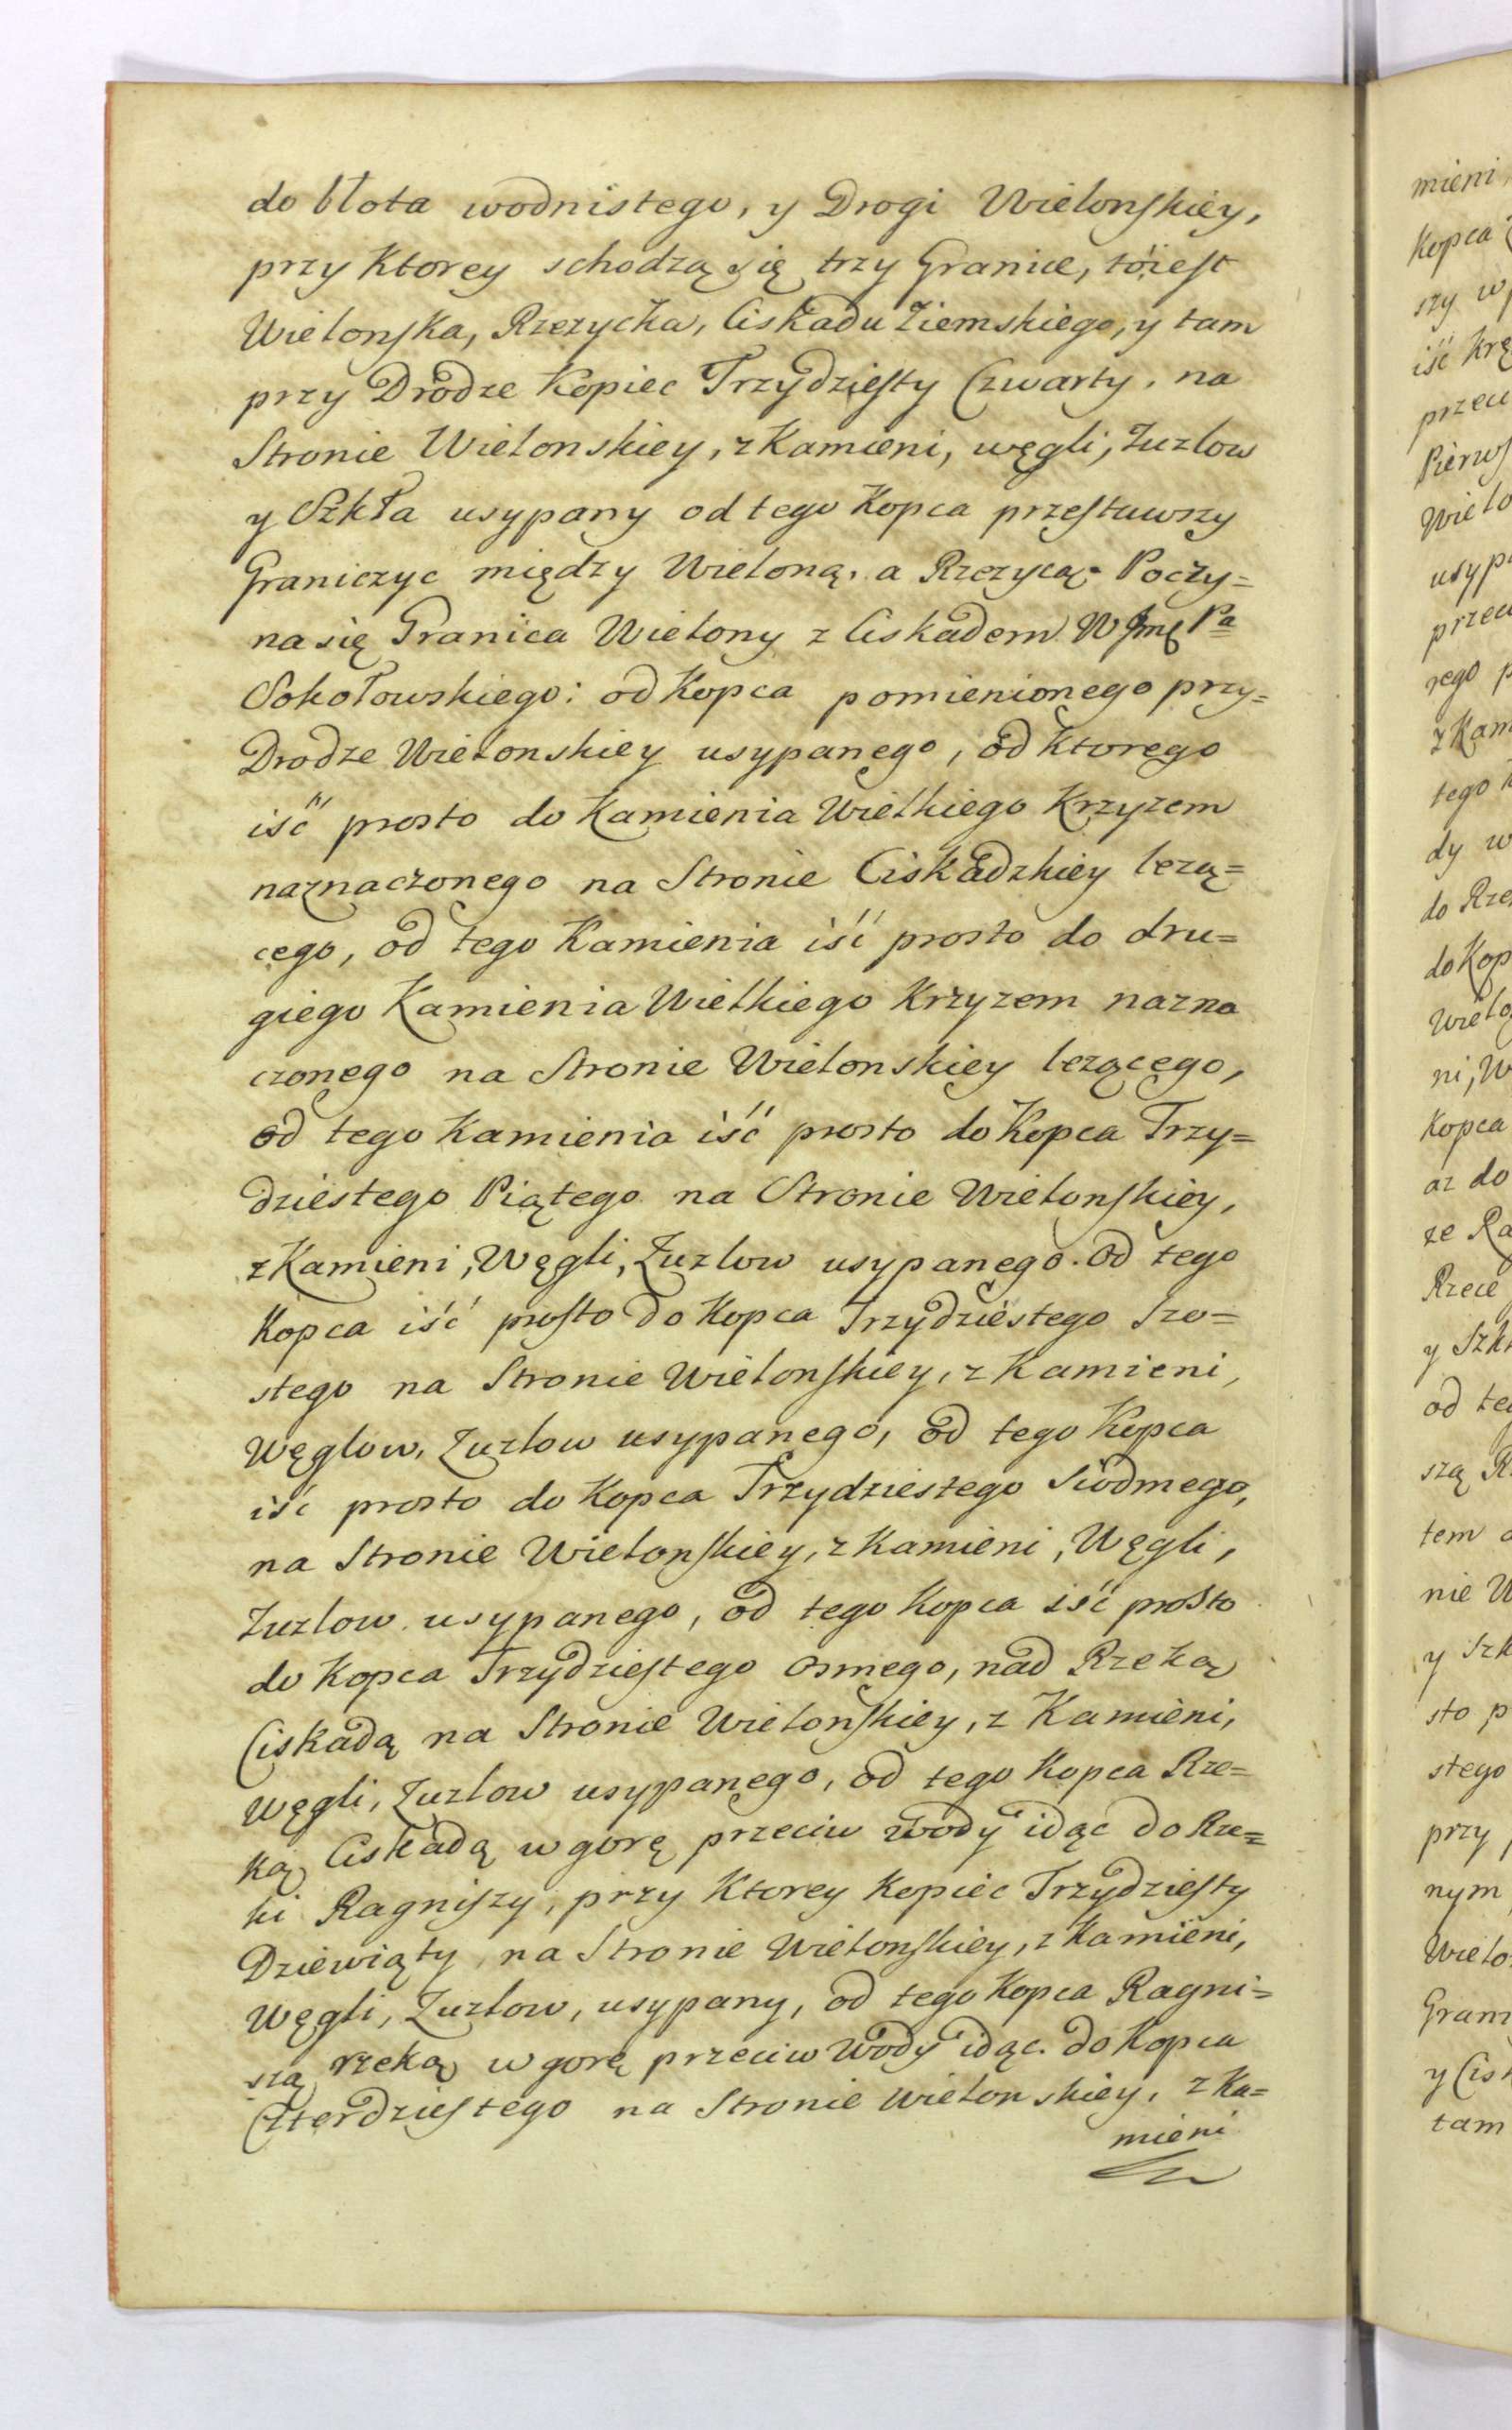 do błota wodnistego, y Drogi Wielonskiey,
przy Ktorey schodzą się trzy Granice, toiest
Wielonska, Rzezycka, Ciskadu Ziemskiego, y tam
przy Drodze Kopiec Trzydziesty Czwarty, na
Stronie Wielonskiey, z Kamieni, węgli, Zuzlow
y Szkła usypany od tego Kopca przestawszy
Graniczyc między Wieloną, a Rzezycą. Poczy=
na się Granica Wielony z Ciskadem W Jmę Pa
Sokołowskiego: od Kopca pomienionego przy=
Drodze Wielonskiey usypanego, od Ktorego
iść prosto do Kamienia Wielkiego Krzyzem
naznaczonego na Stronie Ciskadzkiey lezą=
cego, od tego Kamienia iść prosto do dru=
giego Kamienia Wielkiego Krzyzem nazna
czonego na Stronie Wielonskiey lezącego,
od tego Kamienia iść prosto do Kopca Trzy=
dziestego Piątego na Stronie Wielonskiey,
z Kamieni, Węgli, Zuzlow usypanego. Od tego
Kopca iść prosto do Kopca Trzydziestego Szo=
stego na Stronie Wielonskiey, z Kamieni,
Węglow, Zuzlow usypanego, od tego Kopca
iść prosto do Kopca Trzydziestego Siodmego,
na Stronie Wielonskiey, z Kamieni, Węgli,
Zuzlow usypanego, od tego Kopca iść prosto
do Kopca Trzydziestego osmego, nad Rzeką
Ciskadą na Stronie Wielonskiey, z Kamieni,
Węgli, Zuzlow usypanego, od tego Kopca Rze=
ką Ciskadą w gorę przeciw wody idąc do Rze=
ki Ragniszy, przy Ktorey Kopiec Trzydziesty
Dziewiąty na Stronie Wielonskiey, z Kamieni,
Węgli, Zuzlow, usypany, od tego Kopca Ragni=
szą rzeką w gorę przeciw Wody idąc do Kopca
Czterdziestego na Stronie Wielonskiey, z Ka=
mieni
mieni
Kopca
szy
iść
Pierws
Wielo
rego
z Kam
tego
dy
do Rze
do Kop
Wielo
ni, W
Kopca
az do
ze Ra
Rzece
y Szk
od te
szą R
tem
nie W
y Szk
sto p
stego
przy
nym
Wielo
Grani
y Cis
tam